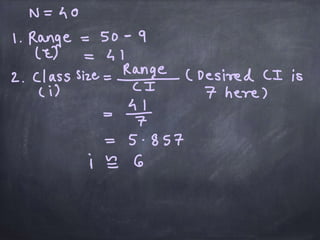 N = 40
1. Range = 50 - 9
(r) = 41
2. Class size = Range / CI (Desired CI is
(i) 7 here)
= 41 / 7
= 5.857
i ≅ 6